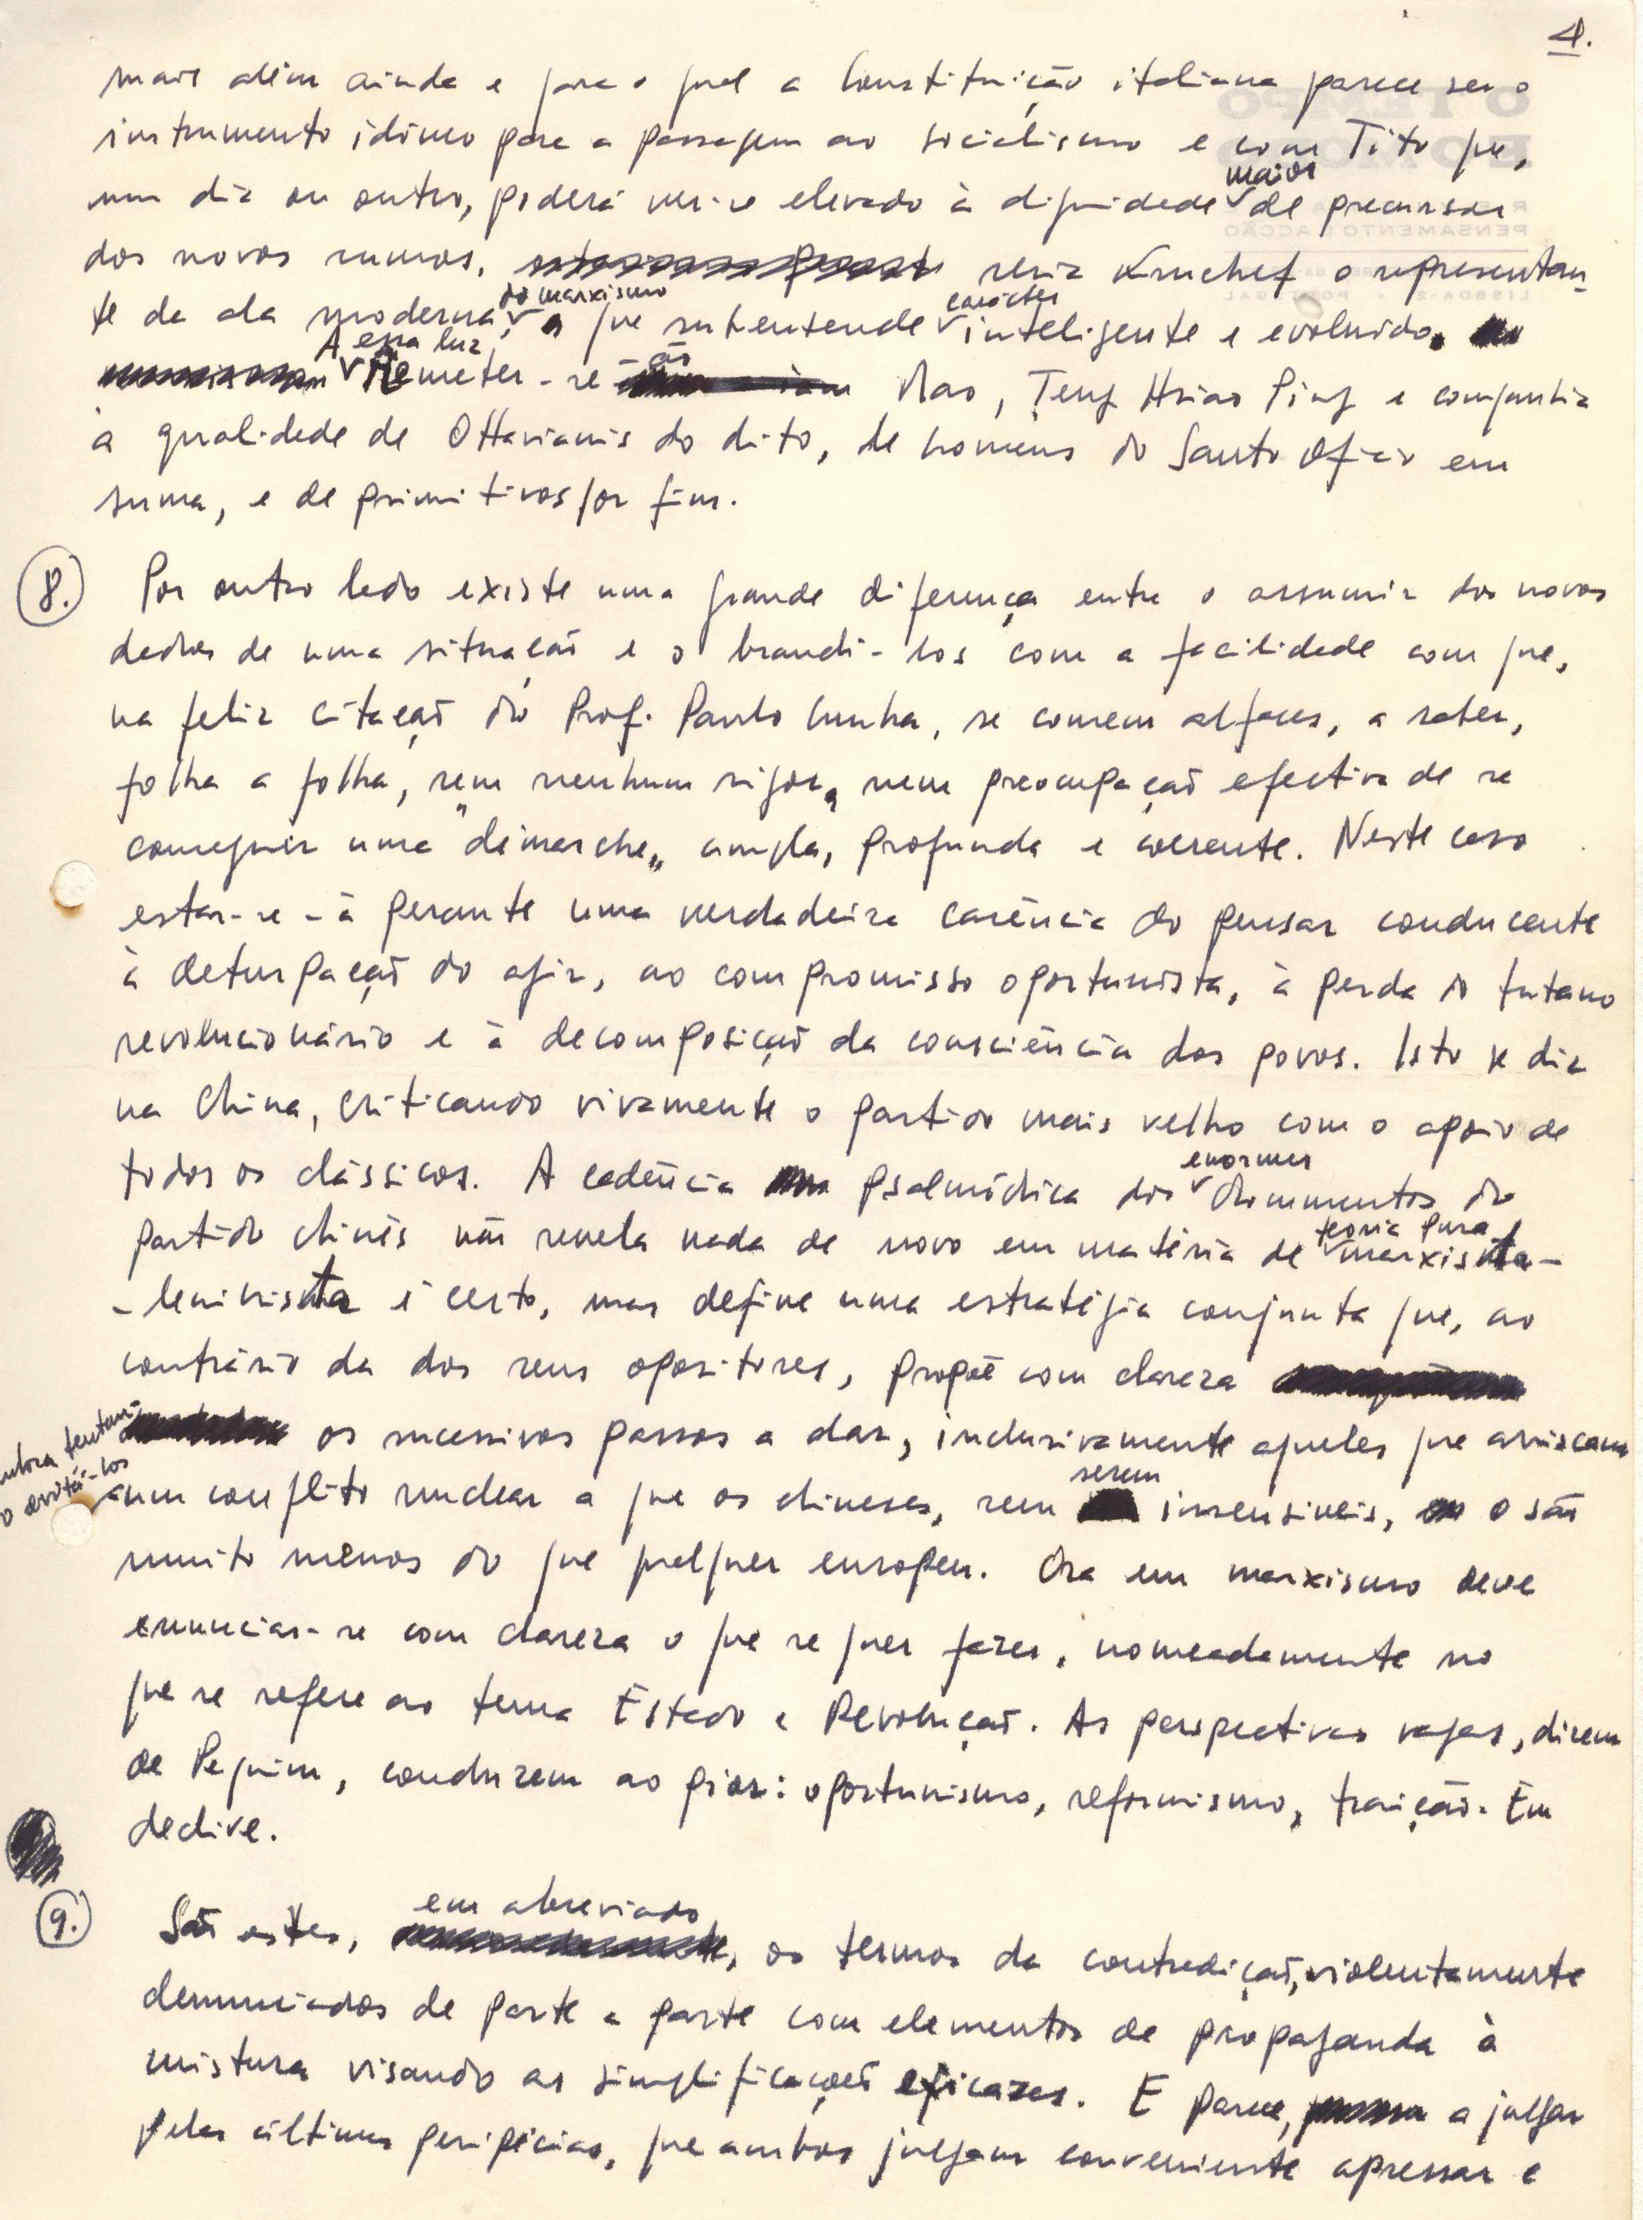 4.
mais além ainda e para o qual a Constituição italiana parece ser o
instrumento idóneo para a passagem ao socialismo e com Tito que,
um dia ou outro, poderá ver-se elevado à dignidade maior de precursor
dos novos rumos, seria Kruchef o representan-
te da ala moderna do marxismo, o que subentende carácter inteligente e evoluído.
A essa luz, Remeter-se-ão Mao, Teng Hsiao Ping e companhia
à qualidade de Ottavianis do dito, de homens do Santo Ofício em
suma, e de primitivos por fim.
8. Por outro lado existe uma grande diferença entre o assumir dos novos
dados de uma situação e o brandi-los com a facilidade com que,
na feliz citação do Prof. Paulo Cunha, se comem alfaces, a saber,
folha a folha, sem nenhum rigor, nem preocupação efectiva de se
conseguir uma "démarche" ampla, profunda e coerente. Neste caso
estar-se-á perante uma verdadeira carência do pensar conducente
à deturpação do agir, ao compromisso oportunista, à perda do tutano
revolucionário e à decomposição da consciência dos povos. Isto se diz
na China, criticando vivamente o partido mais velho com o apoio de
todos os clássicos. A cadência psalmódica dos enormes documentos do
partido chinês não revela nada de novo em matéria de teoria pura marxista-
-leninista é certo, mas define uma estratégia conjunta que, ao
contrário da dos seus opositores, propõe com clareza
os sucessivos passos a dar, inclusivamente aqueles que arriscam
embora tentan-
do evitá-los
um conflito nuclear a que os chineses, sem serem insensíveis, o são
muito menos do que qualquer europeu. Ora em marxismo deve
enunciar-se com clareza o que se quer fazer, nomeadamente no
que se refere ao tema Estado e Revolução. As perspectivas vagas, dizem
de Pequim, conduzem ao pior: oportunismo, reformismo, traição. Em
declive.
9. São estes, em abreviado, os termos da contradição, violentamente
denunciados de parte a parte com elementos de propaganda à
mistura visando as simplificações eficazes. E parece, a julgar
pelas últimas peripécias, que ambos julgam conveniente apressar e